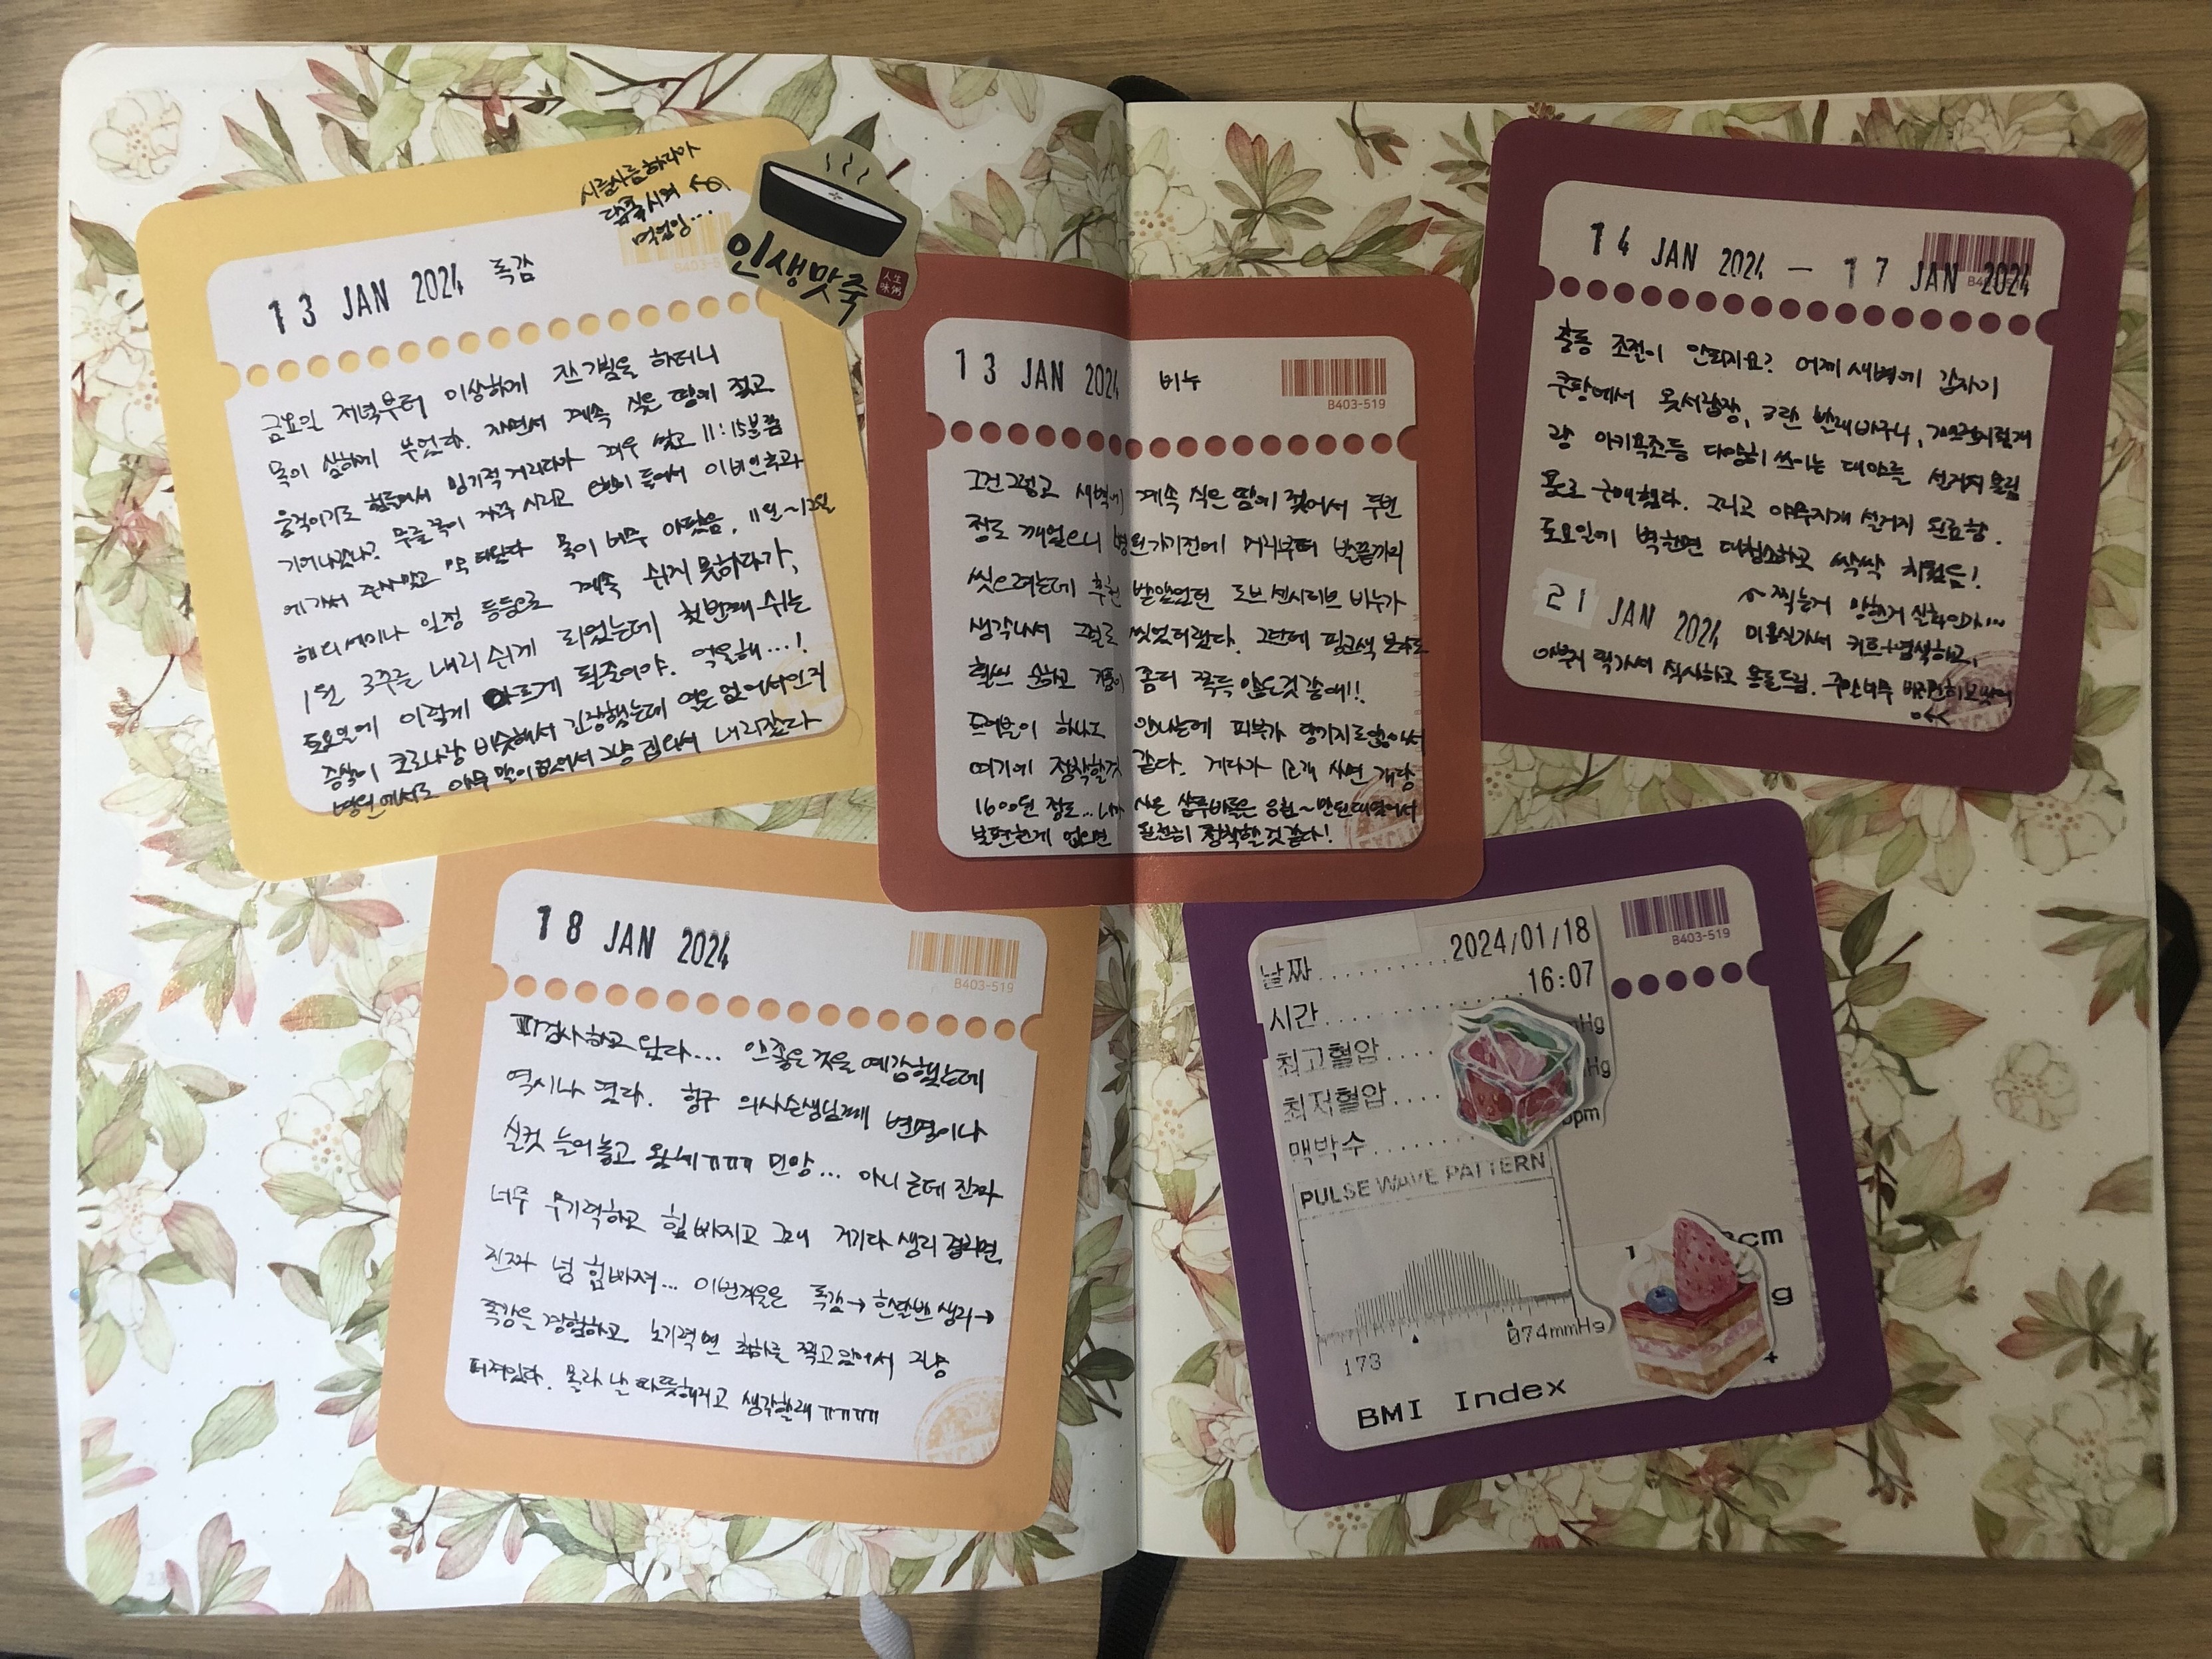 13 JAN 2024 독감
시름시름하다가
죽 시켜
먹었잉...
인생맛죽
人生味粥
금요일 저녁부터 이상하게 잔기침을 하더니
목이 심하게 부었다. 자면서 계속 식은 땀에 젖고
움직이기도 힘들어서 밍기적거리다가 겨우 씻고 11:15분쯤
기어나갔나? 무릎쪽이 자꾸 시리고 이비인후과
에 가서 주사맞고 약 타왔다 목이 너무 아팠음. 11월~12월
해외 세미나 일정 등등으로 계속 쉬지 못하다가,
1월 3주를 내리 쉬게 되었는데 첫번째 쉬는
토요일에 이렇게 아프게 될줄이야. 억울해...!
증상이 코로나랑 비슷해서 긴장했는데 열은 없어서인지
병원에서도 아무 말이 없어서 그냥 집와서 내리잤다
13 JAN 2024 비누
B403-519
그건그렇고 새벽에 계속 식은 땀에 젖어서 두번
정도 깨었으니 병원가기전에 머리부터 발끝까지
씻으려는데 추천 받았었던 도브 센시티브 비누가
생각나서 그걸로 씻었더랬다. 그런데 핑크색 보다도
훨씬 순하고 거품이 좀더 쫀득 않은것 같애!!
트러블이 하나도 안나는데 피부가 당기지도않아서
여기에 정착할것 같다. 게다가 12개 사면 개당
1600원 정도... 니까 사은 샴푸바들은 응첩~만원대였어서
불편한게 없으면 완전히 정착할것 같다!
14 JAN 2024 – 17 JAN 2024
충동 조절이 안되지요? 어제 새벽에 갑자기
쿠팡에서 옷서랍장, 3단 빨래바구니,
랑 아키 등 다양히 쓰이는 대야를 설거지 물림
용로 구매했다. 그리고 야무지게 설거지 완료함.
토요일에 벽한면 대청소하고 싹싹 치웠음!
찍는거 망한거 실화인가...
21 JAN 2024 미용실가서 커트+염색하고,
아부지 댁가서 식사하고 용돈드림.
18 JAN 2024
B403-519
피검사하고 왔다... 안좋은것을 예감했는데
역시나 였다. 항구 의사슨생님께 변명이나
실컷 늘어놓고 왔네ㅠㅠㅠ 민망... 아니 근데 진짜
너무 무기력하고 힘 빠지고 그러네 거기다 생리 걸리면
진짜 넘 힘빠져... 이번겨울은 독감→한달반 생리→
독감을 경험하고 노기력면 최하를 찍고있어서 그냥
퍼져있다. 몰라 날 따뜻해지고 생각할래ㅠㅠㅠㅠ
B403-519
날짜..........2024/01/18
시간..........16:07
최고혈압....
최저혈압....
맥박수
PULSE WAVE PATTERN
173
074mmHg
BMI Index